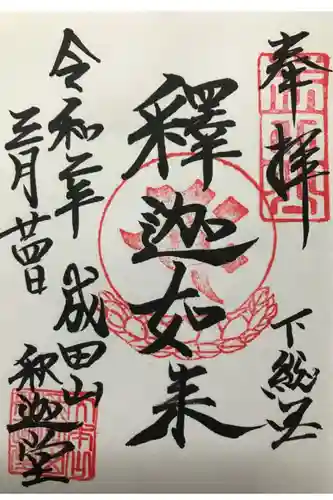 奉拝
下総国
釋迦如来
成田山
釈迦堂
令和二年
三月廿四日